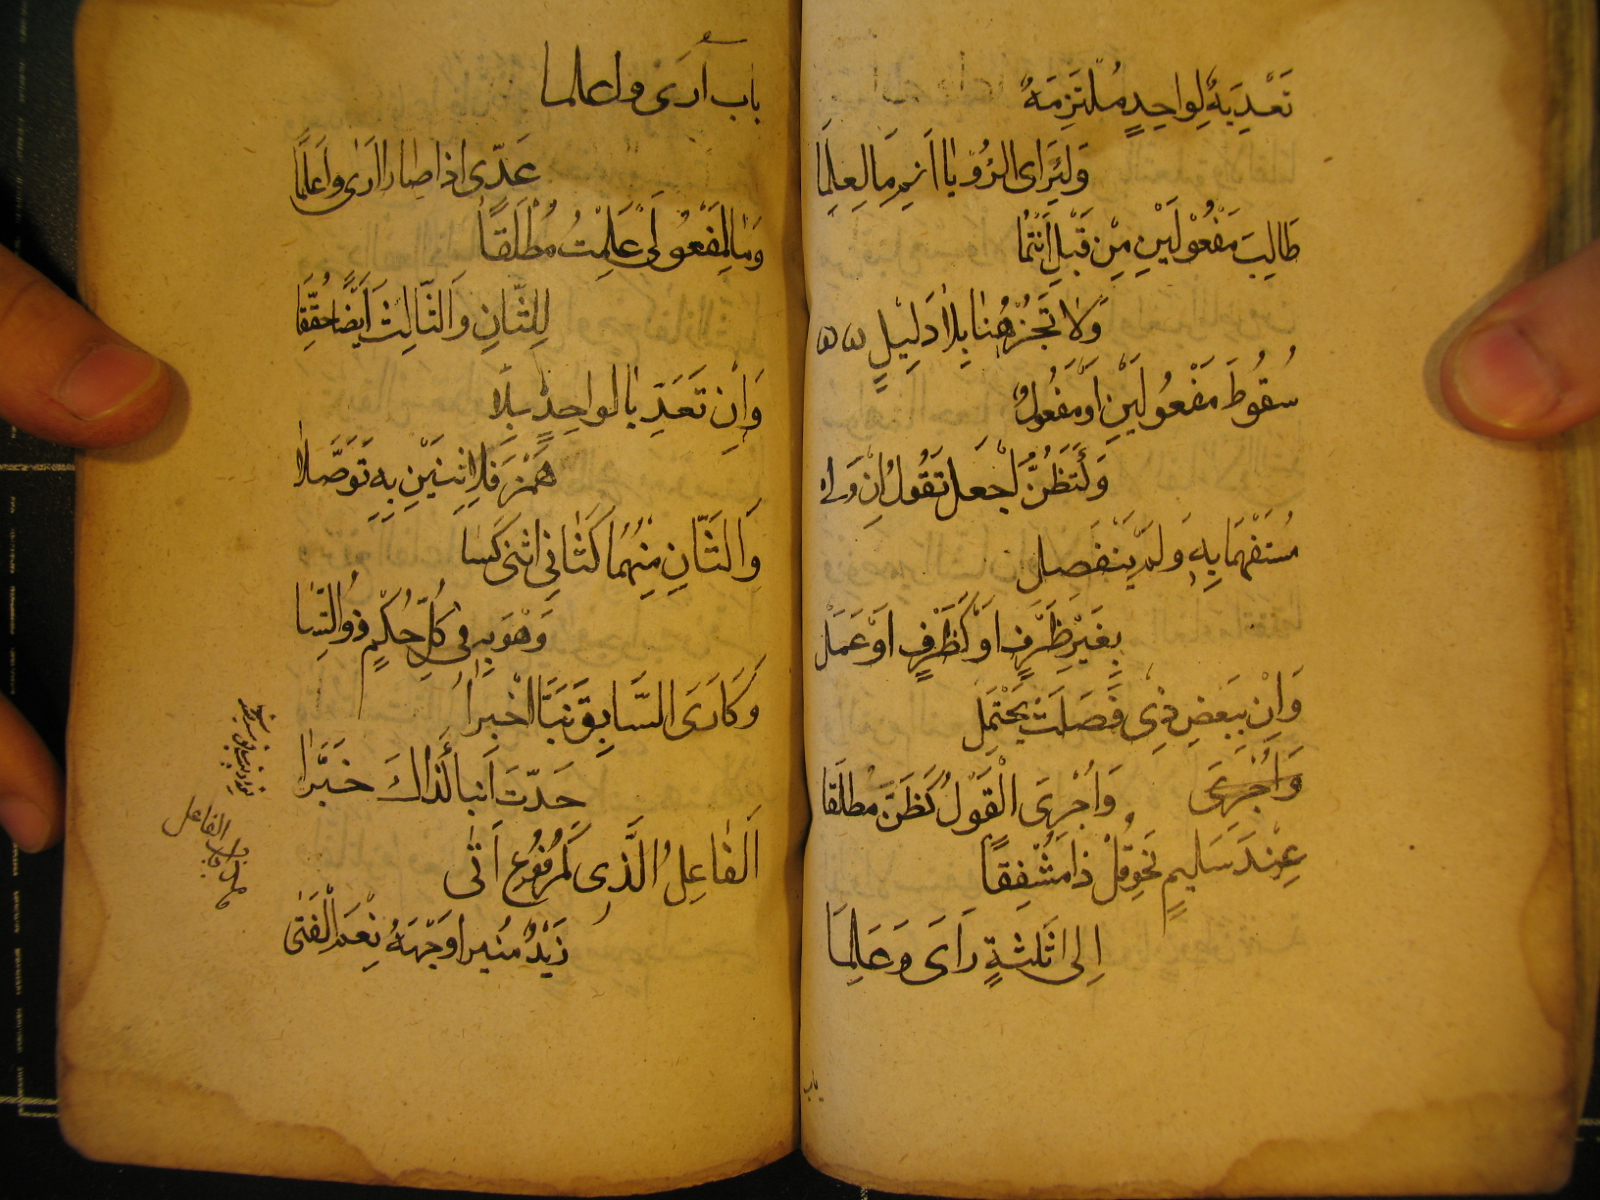 تَعْدِيَةٌ لِوَاحِدٍ مُلْتَزِمَةْ
وَلِرَاى الرُّؤْيَا اَنْمِ مَا لِعَلِمَا
طَالِبَ مَفْعُوْلَيْنِ مِنْ قَبْلُ انْتَمَا
وَلَا تَجُزْ هُنَا بِلَا دَلِيْلٍ
سُقُوْطَ مَفْعُولَيْنِ اَوْ مَفْعُولٍ
وَكَتَظُنُّ اجْعَلْ تَقُولُ اِنْ وَلِى
مُسْتَفْهَمًا بِهِ وَلَمْ يَنْفَصِلِ
بِغَيْرِ ظَرْفٍ اَوْ كَظَرْفٍ اَوْ عَمَلْ
وَاِنْ بِبَعْضِ ذِى فَصَلْتَ يُحْتَمَلْ
وَاُجْرِىَ وَاُجْرِىَ الْقَوْلُ كَظَنَّ مُطْلَقَا
عِنْدَ سُلَيْمٍ نَحْوُ قُلْ ذَا مُشْفِقًا
اِلى ثَلثَةٍ رَاَى وَعَلِمَا
باب
باب اَرَى واعلما
عَدَّى اذا صار اَرَى واَعْلَمَا
وَمَا لِمَفْعُوْلَىْ عَلِمْتُ مُطْلَقًا
لِلثَّانِ وَالثَّالِثِ اَيْضًا حُقِّقَا
وَاِنْ تَعَدَّيَا لِوَاحِدٍ بِلَا
هَمْزٍ فَلِاثْنَيْنِ بِهِ تَوَصَّلَا
وَالثَّانِ مِنْهُمَا كَثَانِى اثْنَىْ كَسَا
فَهُوَ بِهِ فِى كُلِّ حُكْمٍ ذُو ائْتِسَا
وَكَاَرَى السَّابِقِ نَبَّا اَخْبَرَا
حَدَّثَ اَنْبَاَ كَذَاكَ خَبَّرَا
اَلْفَاعِلُ الَّذِى كَمَرْفُوْعَىْ اَتٰى
زَيْدٌ مُنِيرًا وَجْهُهُ نِعْمَ الْفَتٰى
باب الفاعل